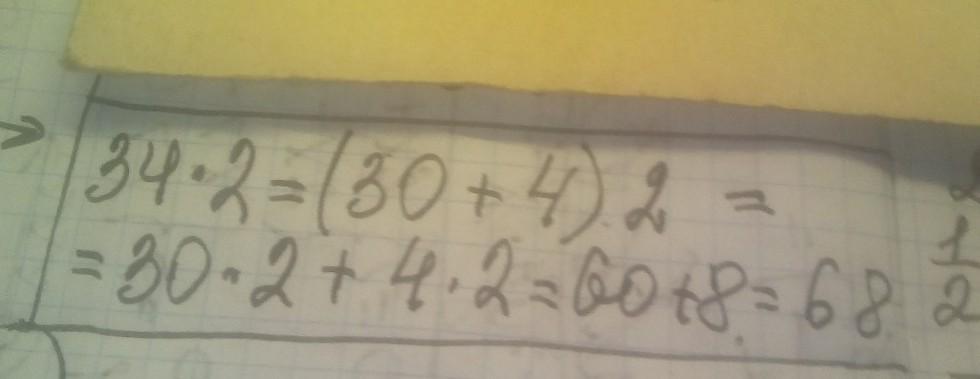 34·2=(30+4)·2=
=30·2+4·2=60+8=68
1
2